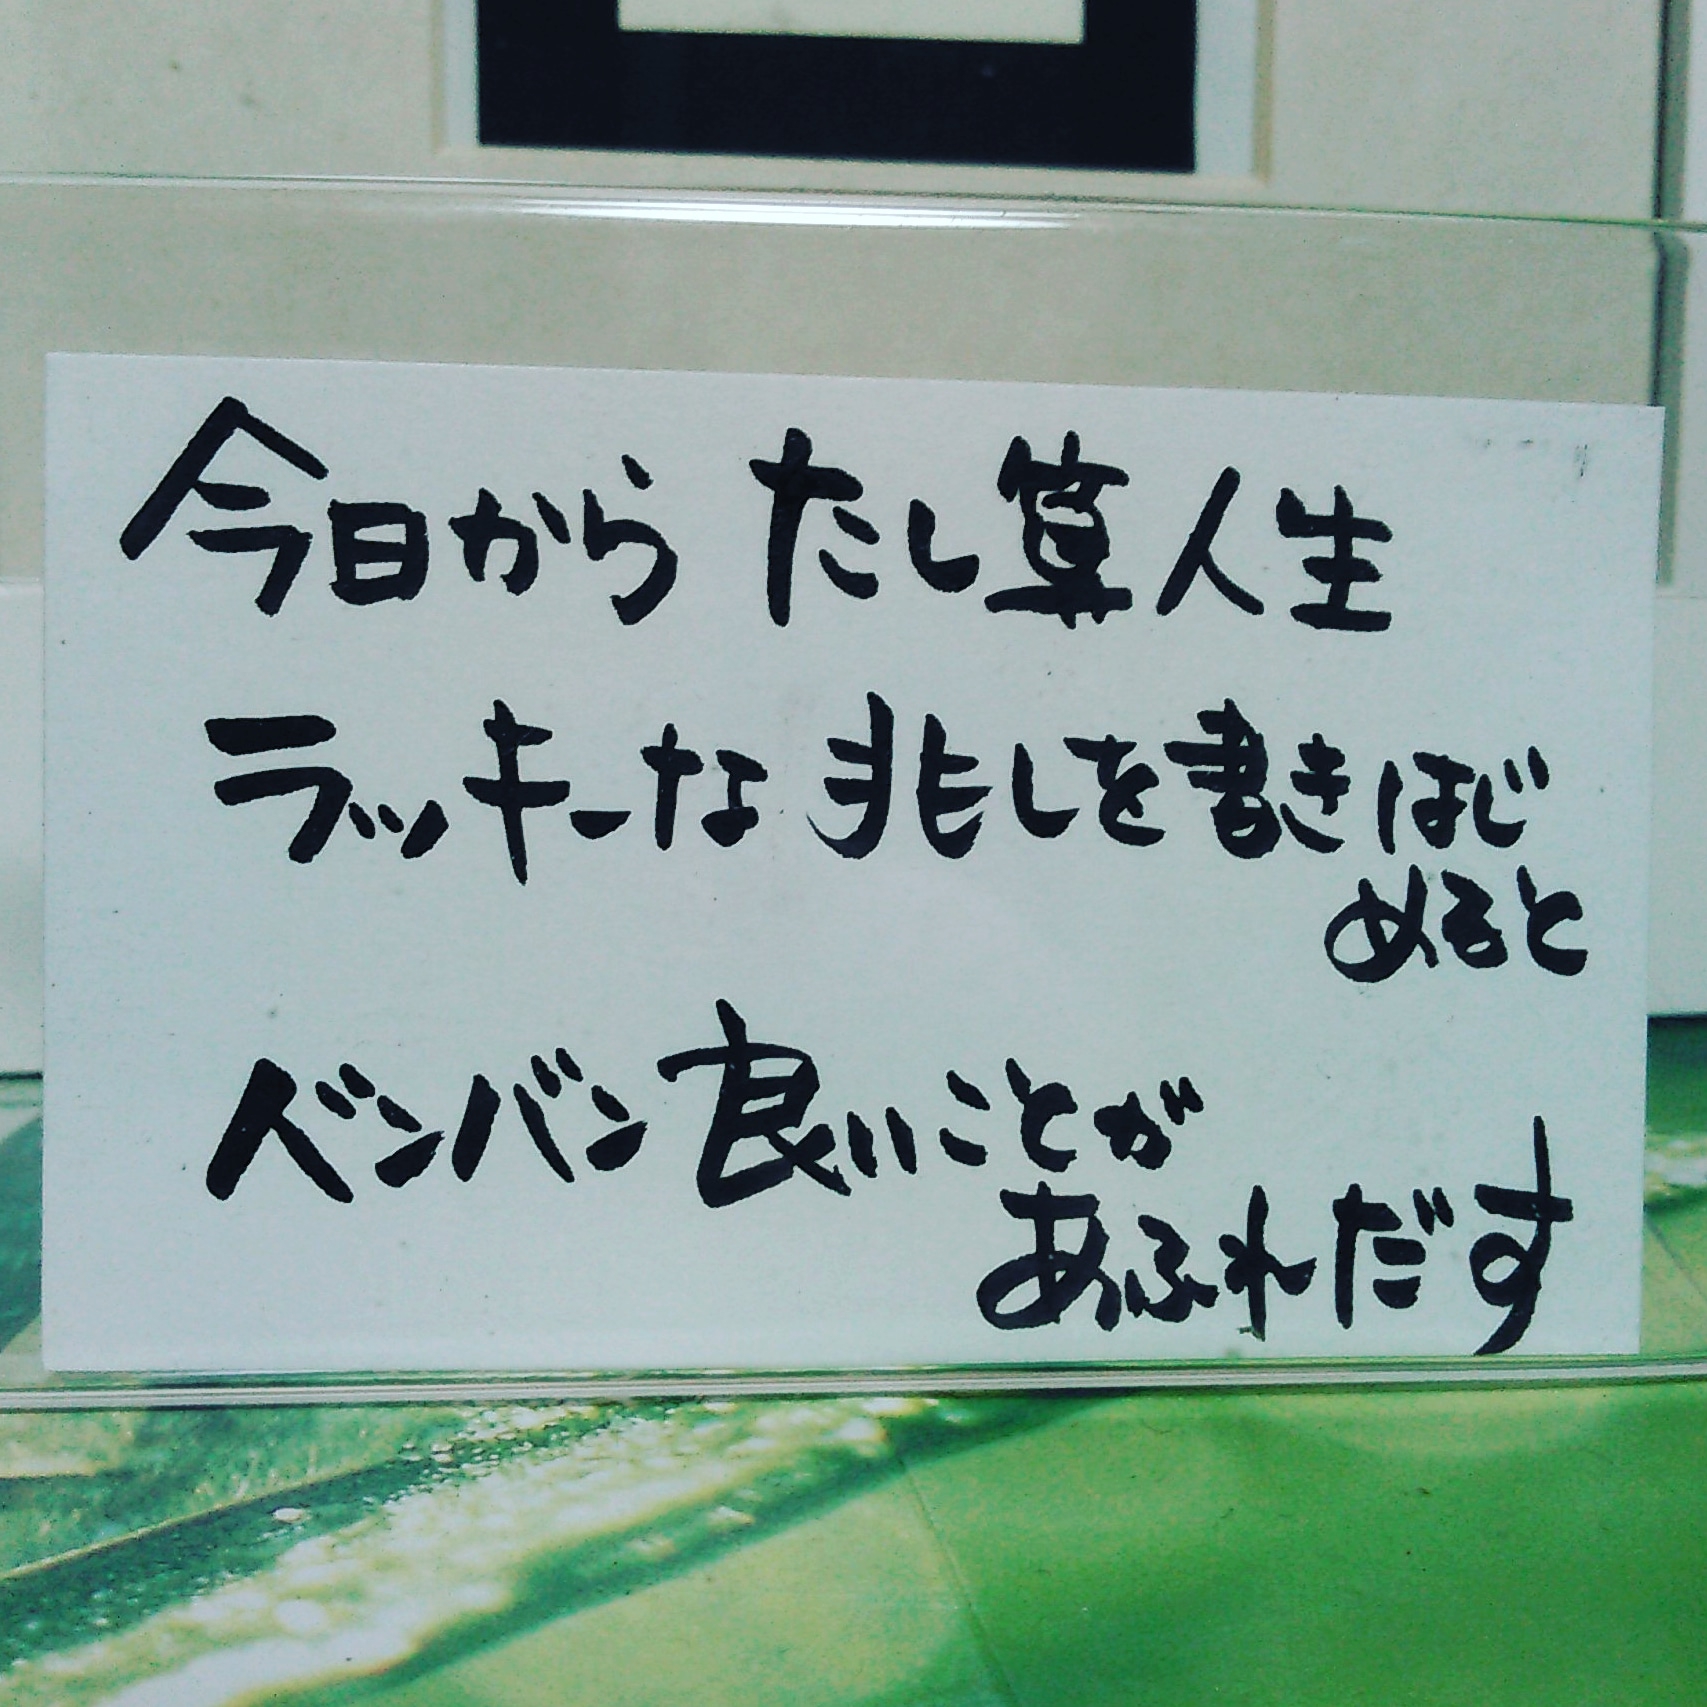 今日から たし算人生
ラッキーな 兆しを書きはじ
めると
ベンバン良いことが
あふれだす